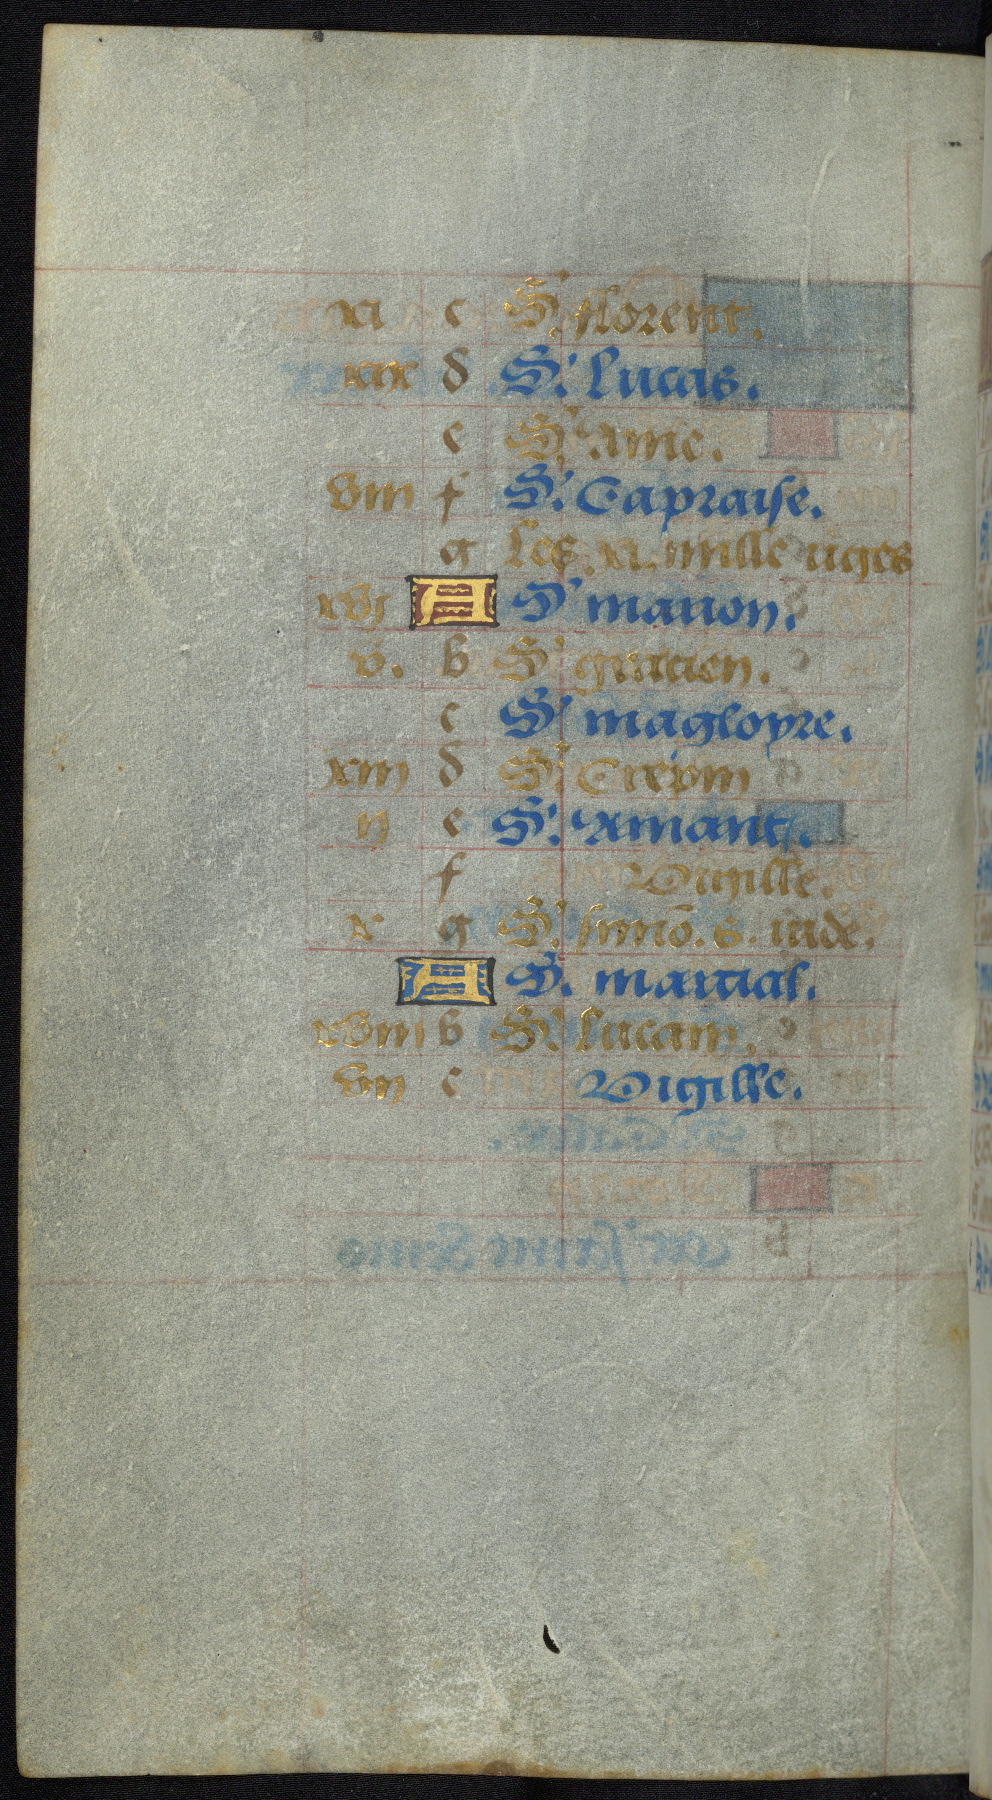 xi c S. florent.
xix d S. Lucas.
e S. Ame.
viii f S. Capraise.
g Les .xi. mille uiges
xvi A S. marion.
v. b S. gracien.
c S. magloyre.
xiii d S. Crepin
ii e S. Amant.
f Vigille.
x g S. simõ. s. iude.
A S. marcial.
xviii b S. Lucain.
vii c Vigille.